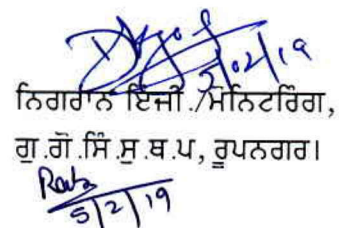 5/02/19
ਨਿਗਰਾਨ ਇੰਜੀ./ਮੋਨਿਟਰਿੰਗ,
ਗੁ.ਗੋ.ਸਿੰ.ਸੁ.ਥ.ਪ, ਰੂਪਨਗਰ।
5/2/19